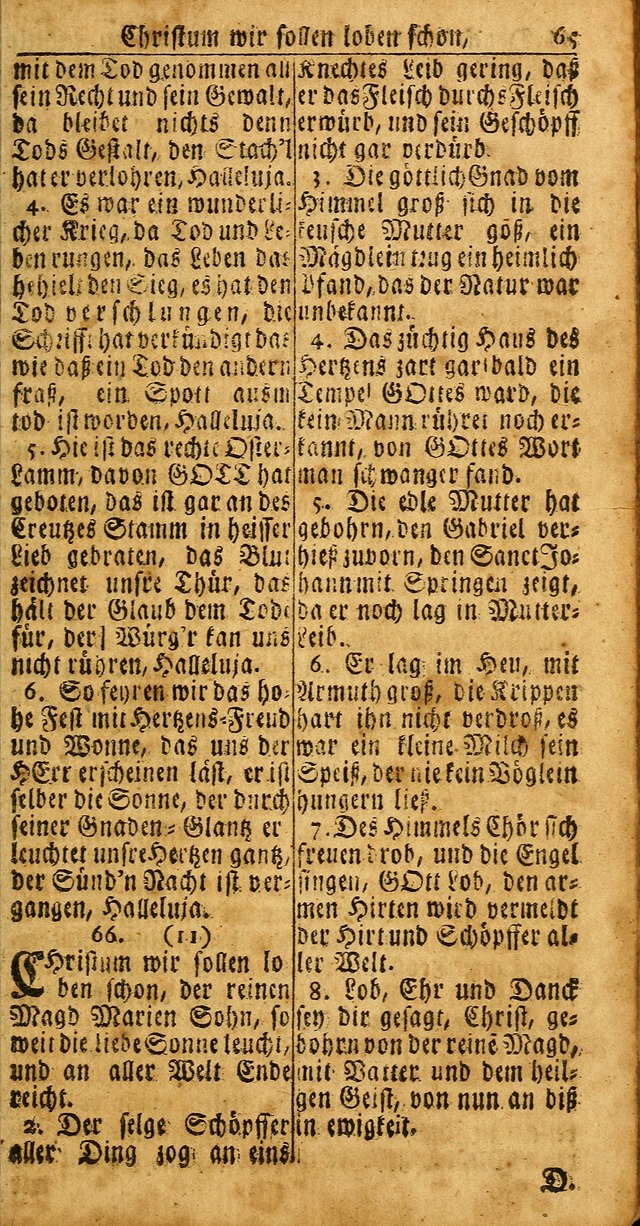 Christum wir sollen loben schon, 65
mit dem Tod genommen all
sein Recht und sein Gewalt,
da bleibet nichts denn
Tods Gestalt, den Stach'l
hat er verlohren, Halleluja.
4. Es war ein wunderli-
cher Krieg, da Tod und Le-
ben rungen, das Leben das
behielt den Sieg, es hat den
Tod verschlungen, die
Schrifft hat verkündigt das
wie daß ein Tod den andern
fraß, ein Spott ausm
tod ist worden, Halleluja.
5. Hie ist das rechte Oster-
Lamm, davon GOTT hat
geboten, das ist gar an des
Creutzes Stamm in heisser
Lieb gebraten, das Blut
zeichnet unsre Thür, das
hält der Glaub dem Tode
für, der Würg'r kan uns
nicht rühren, Halleluja.
6. So feyren wir das ho-
he Fest mit Hertzens-Freud
und Wonne, das uns der
HErr erscheinen läst, er ist
selber die Sonne, der durch
seiner Gnaden-Glantz er
leuchtet unsre Hertzen gantz,
der Sünd'n Nacht ist ver-
gangen, Halleluja.
66. (11)
CHristum wir sollen lo
ben schon, der reinen
Magd Marien Sohn, so
weit die liebe Sonne leucht,
und an aller Welt Ende
reicht.
2. Der selge Schöpffer
aller Ding zog an eins
Knechtes Leib gering, daß
er das Fleisch durchs Fleisch
erwürb, und sein Geschöpff
nicht gar verdürb.
3. Die göttlich Gnad vom
Himmel groß sich in die
keusche Mutter göß, ein
Mägdlein trug ein heimlich
Pfand, das der Natur war
unbekannt.
4. Das züchtig Haus des
Hertzens zart gar bald ein
Tempel GOttes ward, die
kein Mann rühret noch er-
kannt, von GOttes Wort
man schwanger fand.
5. Die edle Mutter hat
gebohrn, den Gabriel ver-
hieß zuvorn, den Sanct Jo-
hann mit Springen zeigt,
da er noch lag in Mutter-
Leib.
6. Er lag im Heu, mit
Armuth groß, die Krippen
hart ihn nicht verdroß, es
war ein kleine Milch sein
Speiß, der nie kein Vöglein
hungern ließ.
7. Des Himmels Chör sich
freuen drob, und die Engel
singen, GOtt Lob, den ar-
men Hirten wird vermeldt
der Hirt und Schöpffer al-
ler Welt.
8. Lob, Ehr und Danck
sey dir gesagt, Christ, ge-
bohrn von der reinē Magd,
mit Vatter und dem heil-
gen Geist, von nun an biß
in ewigkeit.
D.